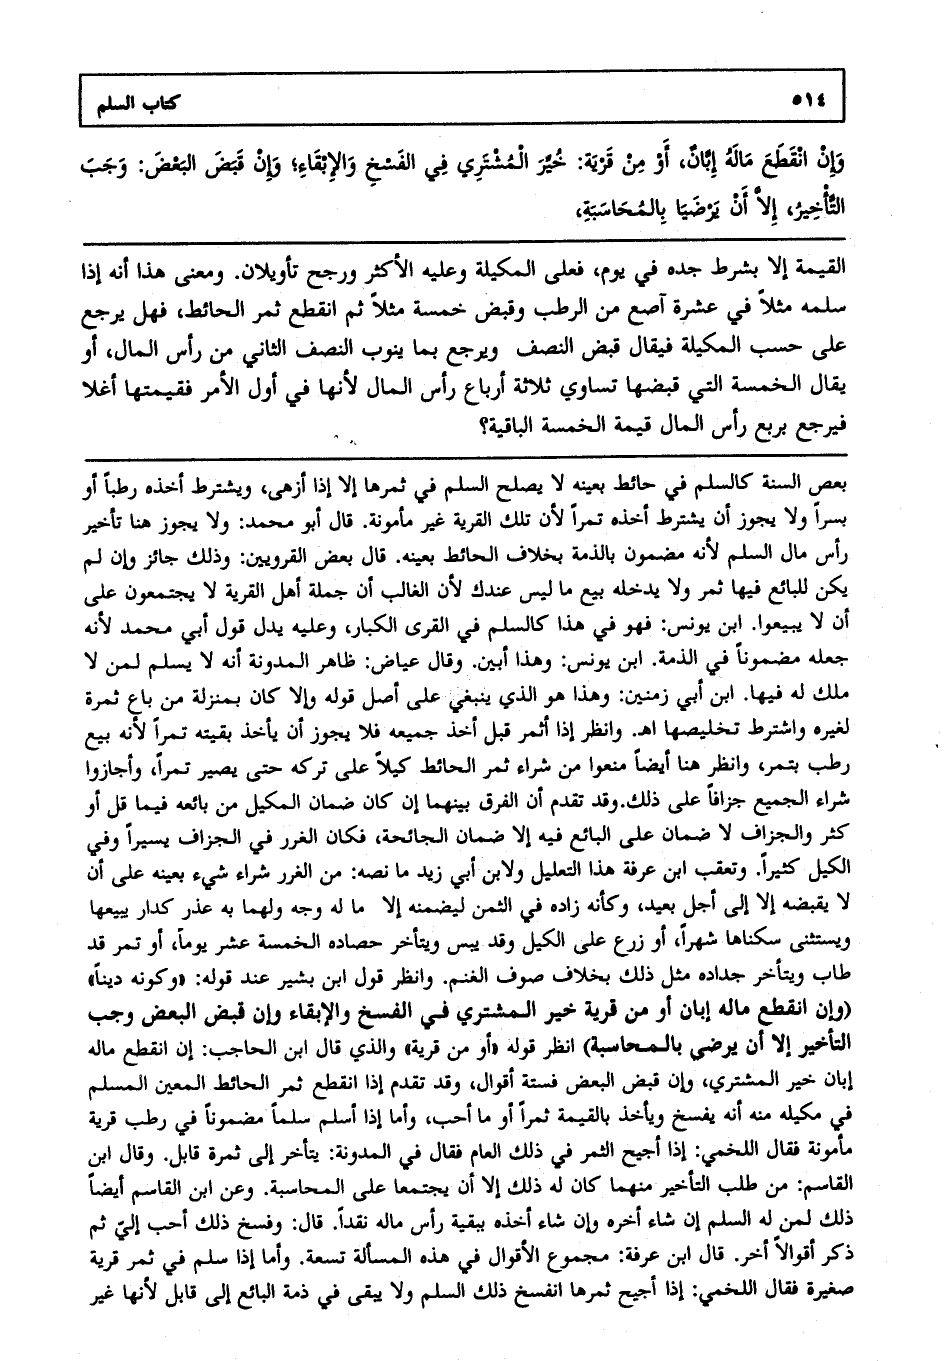 ٥١٤
كتاب السلم
وَإِنْ انْقَطَعَ مَالَهُ إِبَّانٌ، أَوْ مِنْ قَرْيَة: خُيِّرَ الْمُشْتَرِي فِي الفَسْخِ وَالإِبْقَاءِ؛ وَإِنْ قَبَضَ البَعْضَ: وَجَبَ
التَّأْخِيرُ، إِلاَّ أَنْ يَرْضَيَا بِالمُحَاسَبَةِ،
القيمة إلا بشرط جده في يوم، فعلى المكيلة وعليه الأكثر ورجح تأويلان. ومعنى هذا أنه إذا
سلمه مثلاً في عشرة آصع من الرطب وقبض خمسة مثلاً ثم انقطع ثمر الحائط، فهل يرجع
على حسب المكيلة فيقال قبض النصف ويرجع بما ينوب النصف الثاني من رأس المال، أو
يقال الخمسة التي قبضها تساوي ثلاثة أرباع رأس المال لأنها في أول الأمر فقيمتها أغلا
فيرجع بربع رأس المال قيمة الخمسة الباقية؟
بعص السنة كالسلم في حائط بعينه لا يصلح السلم في ثمرها إلا إذا أزهى، ويشترط أخذه رطباً أو
بسراً ولا يجوز أن يشترط أخذه تمراً لأن تلك القرية غير مأمونة. قال أبو محمد: ولا يجوز هنا تأخير
رأس مال السلم لأنه مضمون بالذمة بخلاف الحائط بعينه. قال بعض القرويين: وذلك جائز وإن لم
يكن للبائع فيها ثمر ولا يدخله بيع ما ليس عندك لأن الغالب أن جملة أهل القرية لا يجتمعون على
أن لا يبيعوا. ابن يونس: فهو في هذا كالسلم في القرى الكبار، وعليه يدل قول أبي محمد لأنه
جعله مضموناً في الذمة. ابن يونس: وهذا أبين. وقال عياض: ظاهر المدونة أنه لا يسلم لمن لا
ملك له فيها. ابن أبي زمنين: وهذا هو الذي ينبغي على أصل قوله وإلا كان بمنزلة من باع ثمرة
لغيره واشترط تخليصها اهـ. وانظر إذا أثمر قبل أخذ جميعه فلا يجوز أن يأخذ بقيته تمراً لأنه بيع
رطب بتمر، وانظر هنا أيضاً منعوا من شراء ثمر الحائط كيلاً على تركه حتى يصير تمراً، وأجازوا
شراء الجميع جزافاً على ذلك.وقد تقدم أن الفرق بينهما إن كان ضمان المكيل من بائعه فيما قل أو
كثر والجزاف لا ضمان على البائع فيه إلا ضمان الجائحة، فكان الغرر في الجزاف يسيراً وفي
الكيل كثيراً. وتعقب ابن عرفة هذا التعليل ولابن أبي زيد ما نصه: من الغرر شراء شيء بعينه على أن
لا يقبضه إلا إلى أجل بعيد، وكأنه زاده في الثمن ليضمنه إلا ما له وجه ولهما به عذر كدار يبيعها
ويستثنى سكناها شهراً، أو زرع على الكيل وقد يبس ويتأخر حصاده الخمسة عشر يوماً، أو تمر قد
طاب ويتأخر جداده مثل ذلك بخلاف صوف الغنم. وانظر قول ابن بشير عند قوله: «وكونه ديناً»
(وإن انقطع ماله إبان أو من قرية خير المشتري في الفسخ والإبقاء وإن قبض البعض وجب
التأخير إلا أن يرضى بالمحاسبة) انظر قوله «أو من قرية» والذي قال ابن الحاجب: إن انقطع ماله
إبان خير المشتري، وإن قبض البعض فستة أقوال، وقد تقدم إذا انقطع ثمر الحائط المعين المسلم
في مكيله منه أنه يفسخ ويأخذ بالقيمة ثمراً أو ما أحب، وأما إذا أسلم سلماً مضموناً في رطب قرية
مأمونة فقال اللخمي: إذا أجيح الثمر في ذلك العام فقال في المدونة: يتأخر إلى ثمرة قابل. وقال ابن
القاسم: من طلب التأخير منهما كان له ذلك إلا أن يجتمعا على المحاسبة. وعن ابن القاسم أيضاً
ذلك لمن له السلم إن شاء أخره وإن شاء أخذه ببقية رأس ماله نقداً. قال: وفسخ ذلك أحب إليّ ثم
ذكر أقوالاً أخر. قال ابن عرفة: مجموع الأقوال في هذه المسألة تسعة. وأما إذا سلم في ثمر قرية
صغيرة فقال اللخمي: إذا أجيح ثمرها انفسخ ذلك السلم ولا يبقى في ذمة البائع إلى قابل لأنها غير